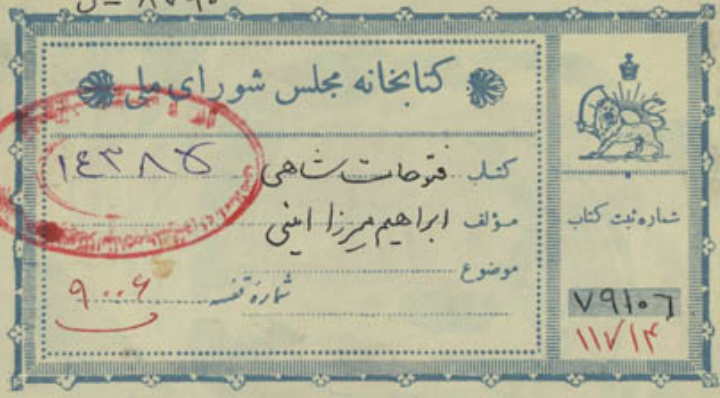 کتابخانه مجلس شورای ملی
کتاب فتوحات شاهی
۱۴۳۸۷
مؤلف ابراهیم میرزا امینی
موضوع
شمارهٔ قفسه ۹۰۰۶
شماره ثبت کتاب
۷۹۱۰۶
۱۱۷۱۴